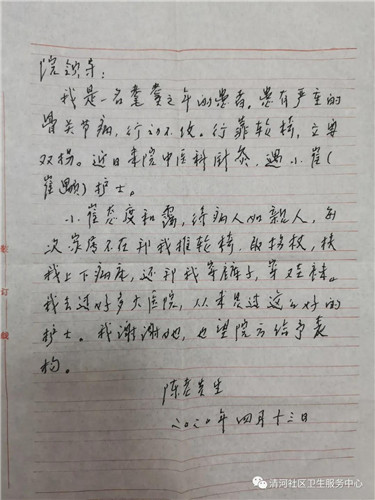 院领导：
我是一名耄耋之年的患者。患有严重的
骨关节病，行动不便。行靠轮椅，立要
双拐。近日来院中医科针灸，遇小崔（
崔颢）护士。
小崔态度和蔼，待病人如亲人，每
次炎居不在帮我推轮椅、取拐杖，扶
我上下病床，还帮我穿裤子，穿鞋袜。
我去过好多大医院，从未见过这么好的
护士。我谢谢她，也望院方给予表
扬。
陈老先生
二〇二〇年四月十三日
装 订 线
清河社区卫生服务中心